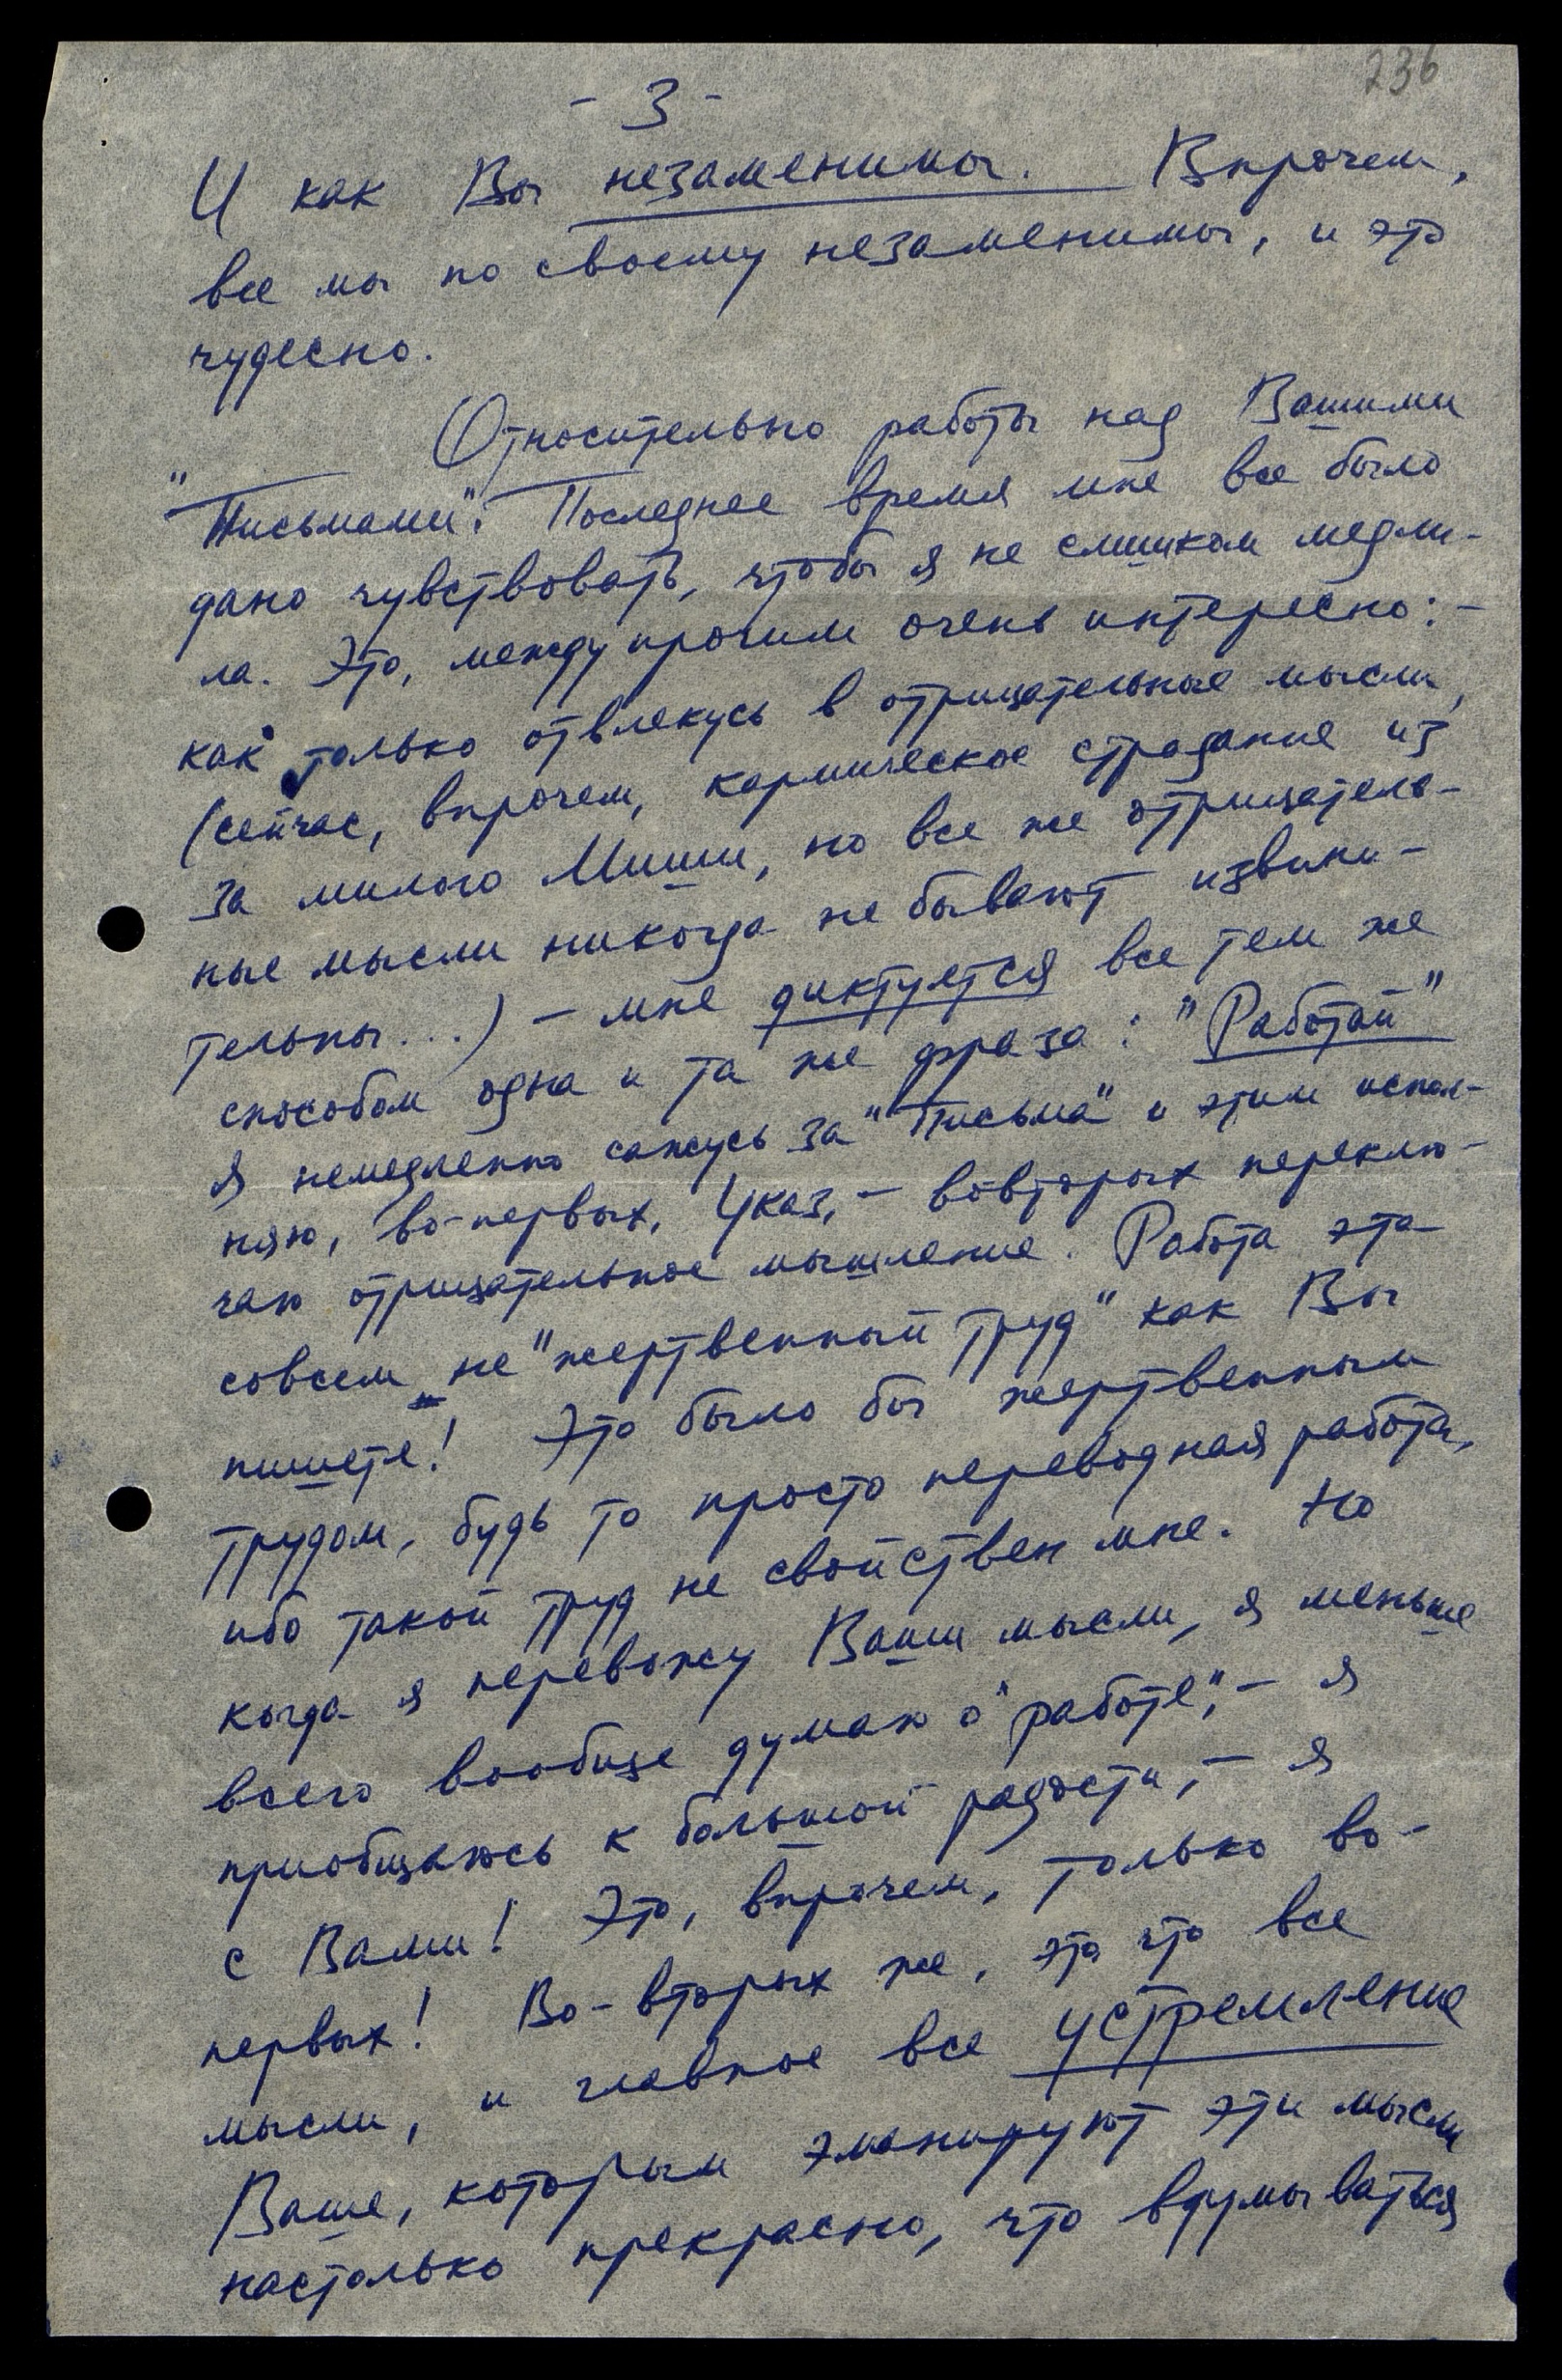 236
- 3 -
И как Вы незаменимы. Впрочем,
все мы по своему незаменимы, и это
чудесно.
Относительно работы над Вашими
"Письмами". Последнее время мне все было
дано чувствовать, чтобы я не слишком медли-
ла. Это, между прочим очень интересно: -
как только отвлекусь в отрицательные мысли,
(сейчас, впрочем, кармическое страдание из
за милого Миши, но все же отрицатель-
ные мысли никогда не бывают извини-
тельны...) - мне диктуется все тем же
способом одна и та же фраза: "Работай"
Я немедленно сажусь за "Письма" и этим испол-
няю, во-первых, Указ, - вовторых переклю-
чаю отрицательное мышление. Работа эта
совсем не "жертвенный труд" как Вы
пишете! Это было бы жертвенным
трудом, будь то просто переводная работа,
ибо такой труд не свойствен мне. Но
когда я перевожу Ваши мысли, я меньше
всего вообще думаю о "работе", - я
приобщаюсь к большой радости, - я
с Вами! Это, впрочем, только во-
первых! Во-вторых же, это что все
мысли, и главное все устремление
Ваше, которым эманируют эти мысли
настолько прекрасно, что вдумываться